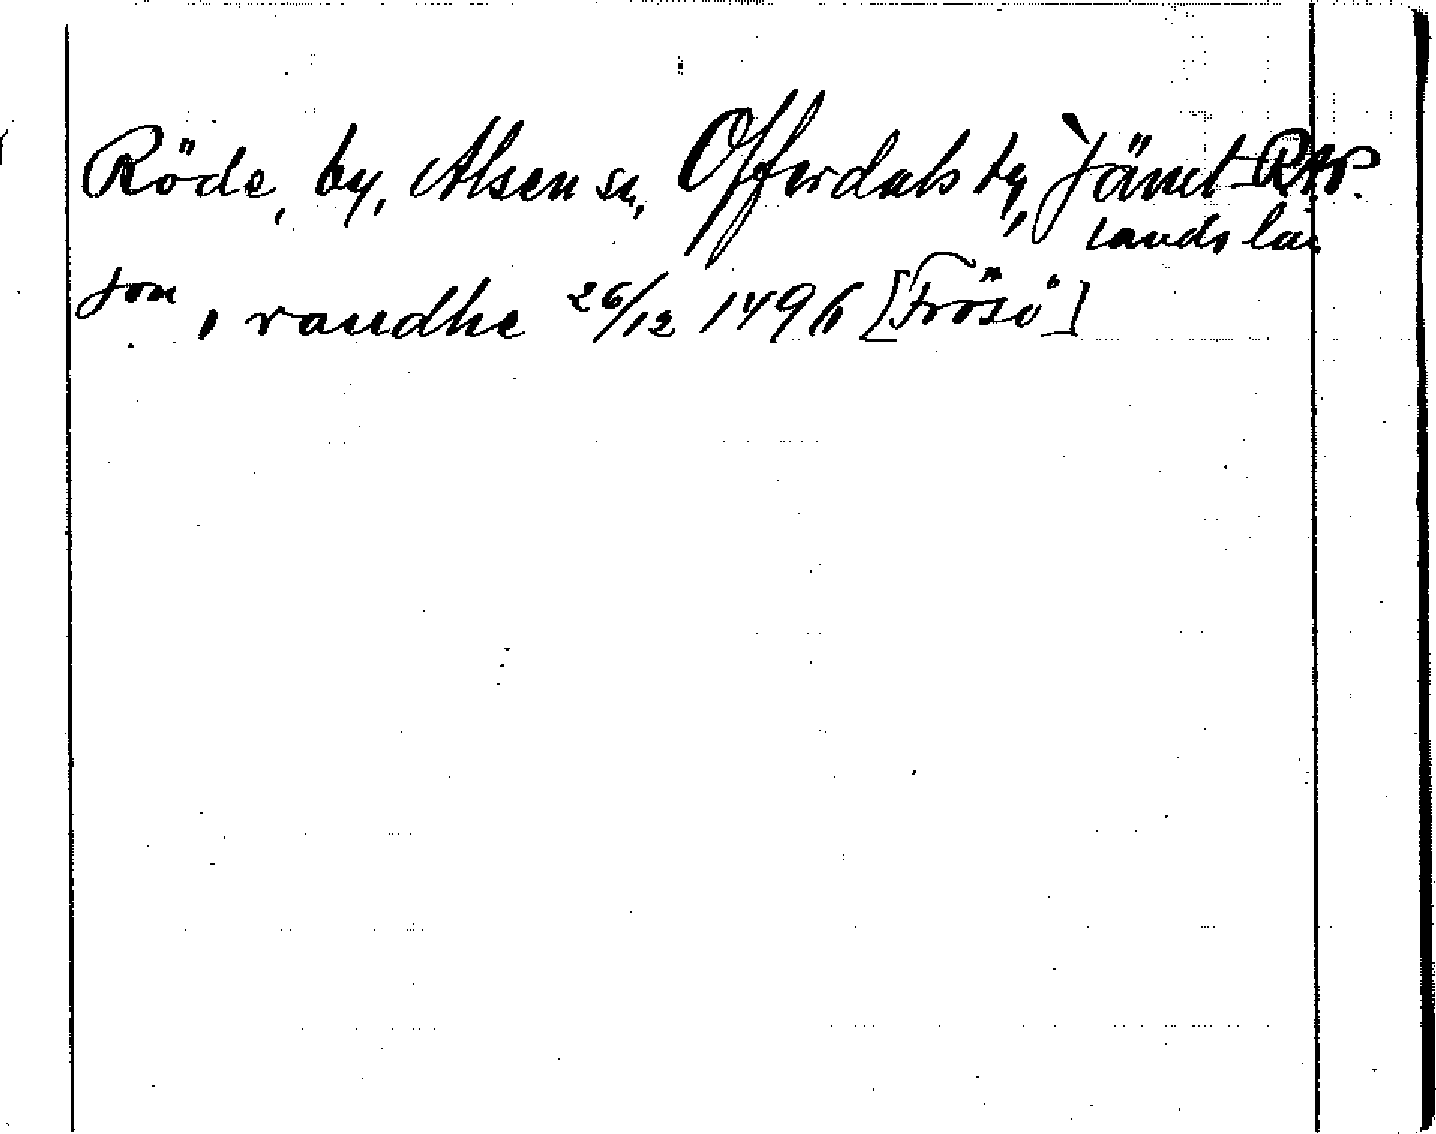 Röde, by, Alsen sn, Offerdals tg, Jämt RAP.
lands län
Jon, raudhe 26/12 1496 [Frösö]